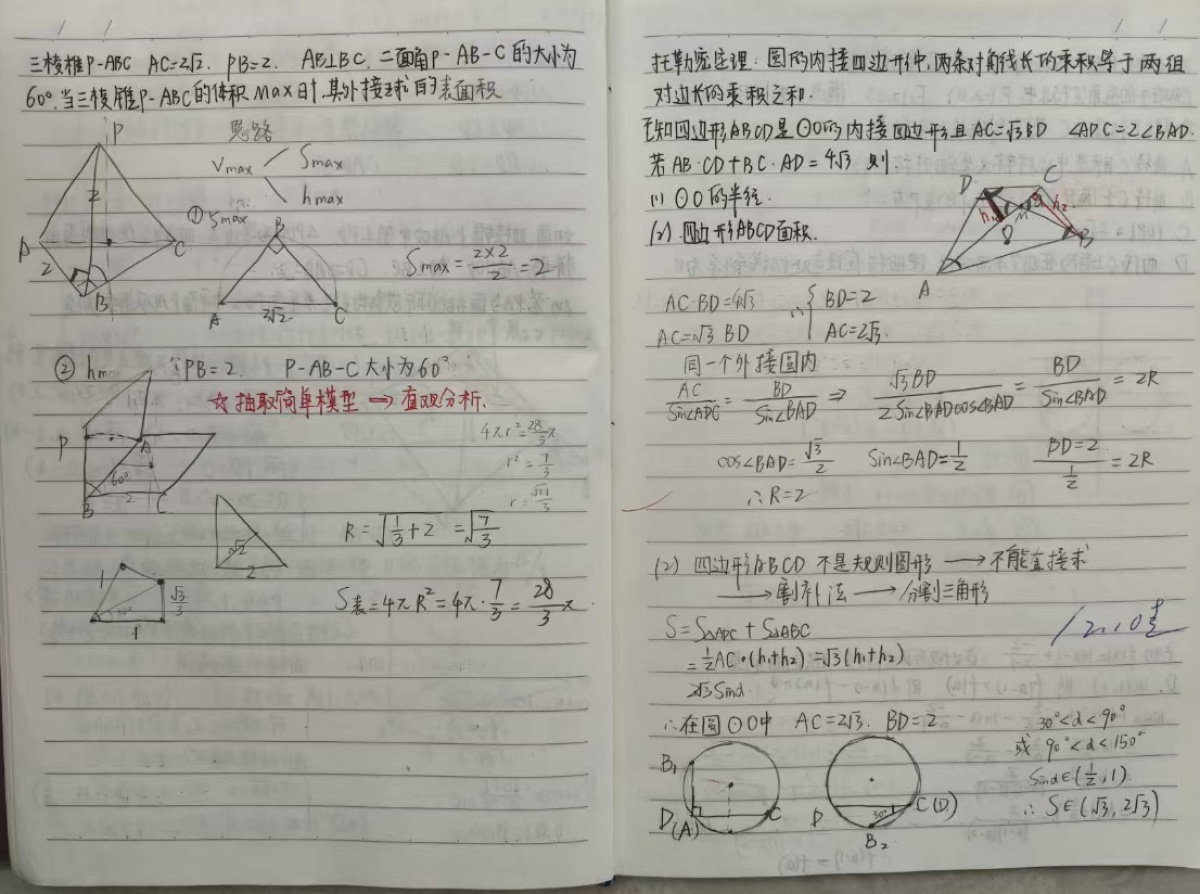 三棱锥P-ABC AC=2√2. PB=2. AB⊥BC. 二面角P-AB-C的大小为
60°.当三棱锥P-ABC的体积max时.其外接球的表面积
思路
Vmax
Smax
hmax
P
2
A
C
2
B
①Smax
B
A
2√2
C
Smax=2×2/2=2
② hm
∵PB=2. P-AB-C大小为60°
☆抽取简单模型→直观分析.
P
A
60°
2
B
C
4πr²=28/3π
r²=7/3
r=√21/3
√2
2
R=√(1/3+2)=√(7/3)
1
30°
√3/3
1
S表=4πR²=4π·7/3=28/3π
托勒密定理:圆的内接四边形中,两条对角线长的乘积等于两组
对边长的乘积之和.
已知四边形ABCD是⊙O的内接四边形且AC=√3BD ∠ADC=2∠BAD.
若AB·CD+BC·AD=4√3 则:
(1) ⊙O的半径.
(2) 四边形ABCD面积.
D
C
h₁
M
h₂
B
O
A
AC·BD=4√3
AC=√3 BD
∴
BD=2
AC=2√3.
同一个外接圆内
AC/sin∠ADC=BD/sin∠BAD ⇒ √3BD/2sin∠BADcos∠BAD=BD/sin∠BAD=2R
cos∠BAD=√3/2 sin∠BAD=1/2 BD=2/(1/2)=2R
∴R=2
(2) 四边形ABCD 不是规则图形→不能直接求
→割补法→分割三角形
S=S△ADC+S△ABC
=1/2AC·(h₁+h₂)=√3(h₁+h₂)
2√3sinα.
∴在圆⊙O中 AC=2√3. BD=2
30°<α<90°
或 90°<α<150°
sinα∈(1/2,1)
∴S∈(√3,2√3)
B₁
D(A)
C
D
30°
C(D)
B₂